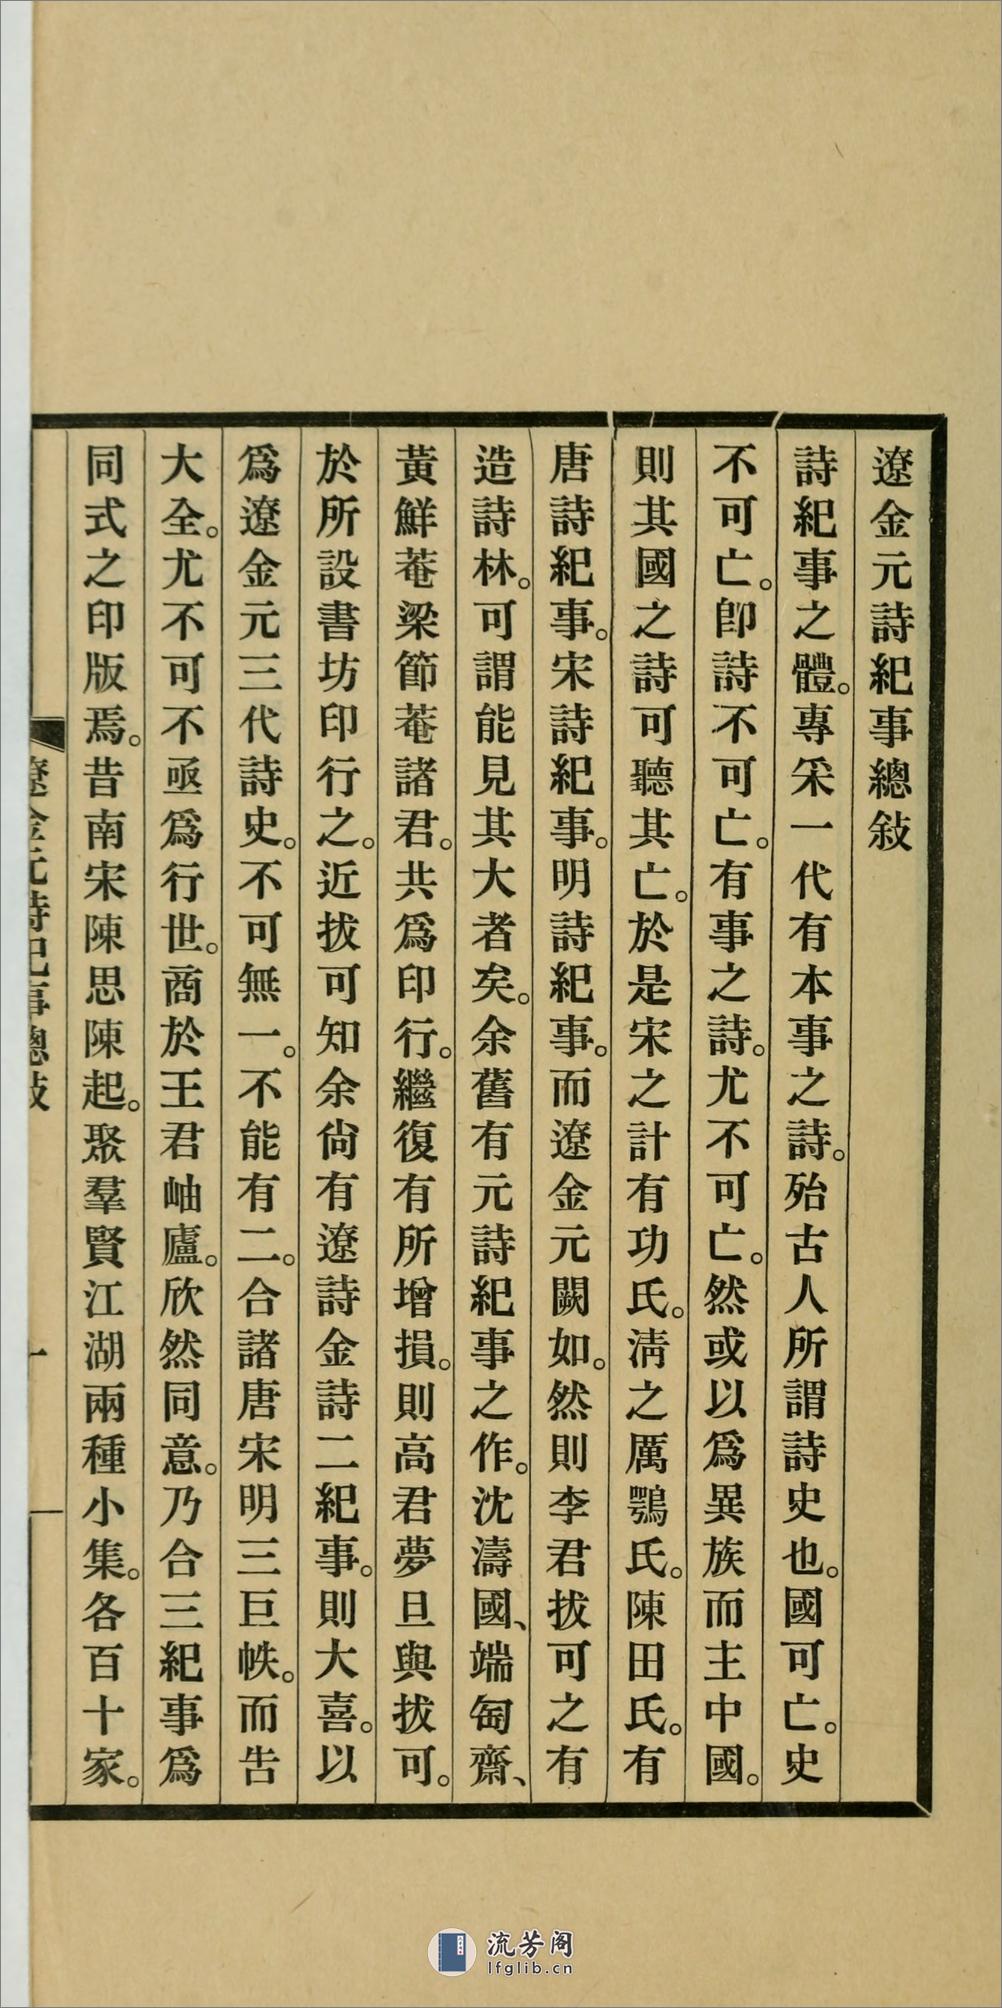 遼金元詩紀事總敍
詩紀事之體。專采一代有本事之詩。殆古人所謂詩史也。國可亡。史
不可亡。卽詩不可亡。有事之詩。尤不可亡。然或以爲異族而主中國。
則其國之詩可聽其亡。於是宋之計有功氏。淸之厲鶚氏。陳田氏。有
唐詩紀事。宋詩紀事。明詩紀事。而遼金元闕如。然則李君拔可之有
造詩林。可謂能見其大者矣。余舊有元詩紀事之作。沈濤國、端匋齋、
黃鮮菴梁節菴諸君。共爲印行。繼復有所增損。則高君夢旦與拔可。
於所設書坊印行之。近拔可知余尙有遼詩金詩二紀事。則大喜。以
爲遼金元三代詩史。不可無一。不能有二。合諸唐宋明三巨帙。而告
大全。尤不可不亟爲行世。商於王君岫廬。欣然同意。乃合三紀事爲
同式之印版焉。昔南宋陳思陳起。聚羣賢江湖兩種小集。各百十家。
遼金元詩紀事總敍
一
流芳阁
lfglib.cn